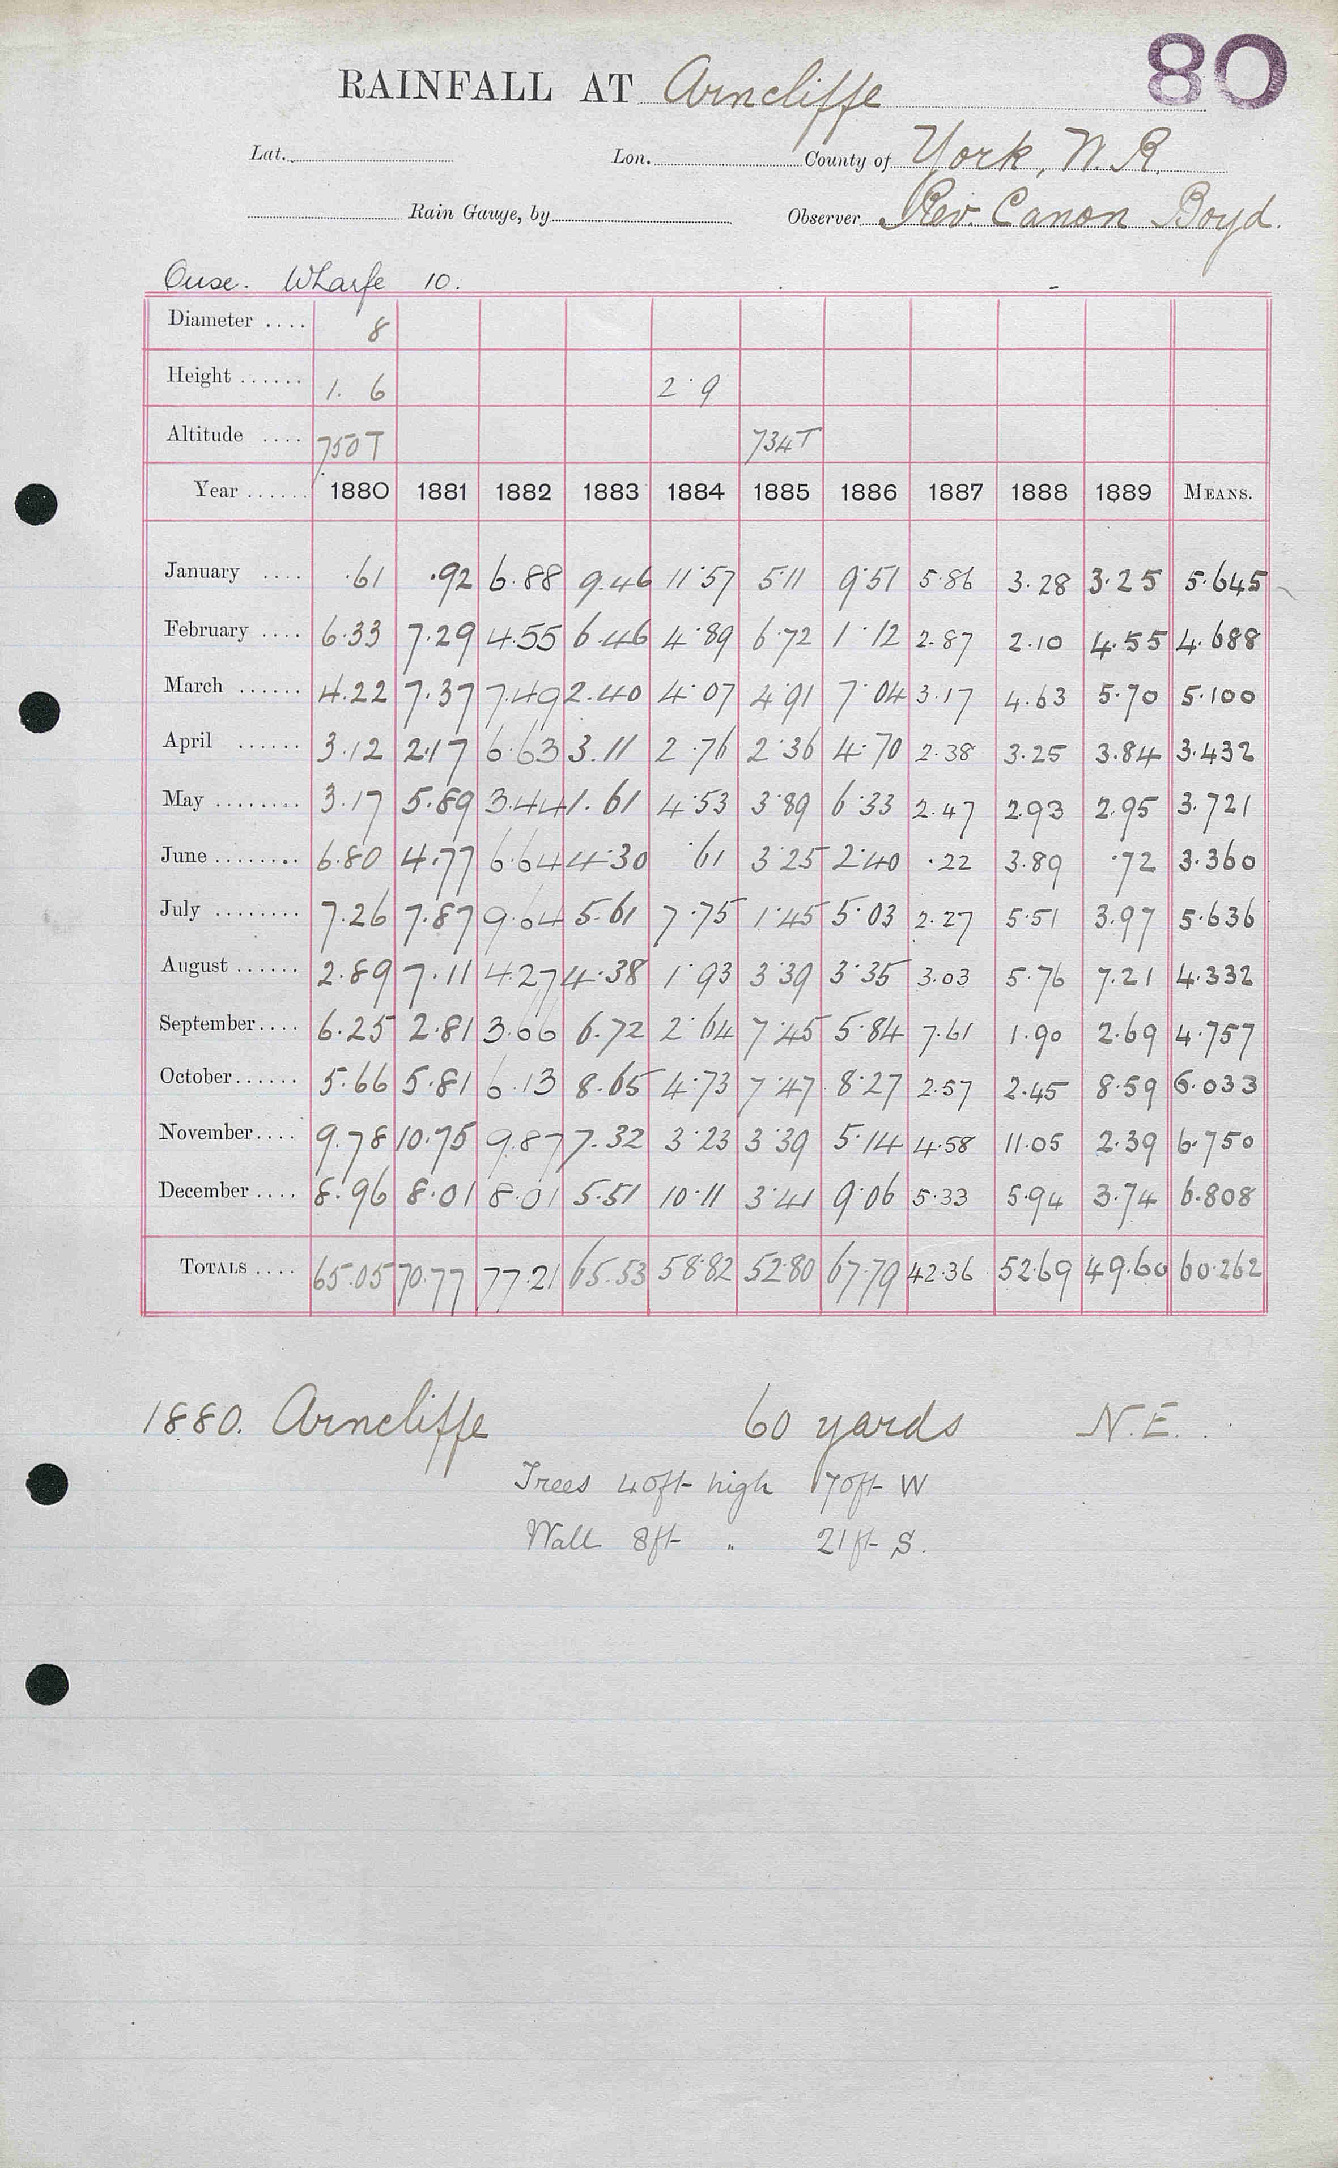 80
RAINFALL AT Arncliffe
Lat. Lon. County of York, N.R.
Rain Gauge, by Observer Rev. Canon Boyd.
Ouse. Wharfe 10.
Diameter .... 8
Height ...... 1. 6 2 9
Altitude .... 750T 734T
Year ...... 1880 1881 1882 1883 1884 1885 1886 1887 1888 1889 MEANS.
January .... .61 .92 6.88 9.46 11.57 5.11 9.51 5.86 3.28 3.25 5.645
February .... 6.33 7.29 4.55 6.46 4.89 6.72 1.12 2.87 2.10 4.55 4.688
March ...... 4.22 7.37 7.49 2.40 4.07 4.91 7.04 3.17 4.63 5.70 5.100
April ...... 3.12 2.17 6.63 3.11 2.76 2.36 4.70 2.38 3.25 3.84 3.432
May ........ 3.17 5.89 3.44 1.61 4.53 3.89 6.33 2.47 2.93 2.95 3.721
June ........ 6.80 4.77 6.64 4.30 .61 3.25 2.40 .22 3.89 .72 3.360
July ........ 7.26 7.87 9.64 5.61 7.75 1.45 5.03 2.27 5.51 3.97 5.636
August ...... 2.89 7.11 4.27 4.38 1.93 3.39 3.35 3.03 5.76 7.21 4.332
September.... 6.25 2.81 3.66 6.72 2.64 7.45 5.84 7.61 1.90 2.69 4.757
October...... 5.66 5.81 6.13 8.65 4.73 7.47 8.27 2.57 2.45 8.59 6.033
November.... 9.78 10.75 9.87 7.32 3.23 3.39 5.14 4.58 11.05 2.39 6.750
December .... 8.96 8.01 8.01 5.51 10.11 3.41 9.06 5.33 5.94 3.74 6.808
TOTALS .... 65.05 70.77 77.21 65.53 58.82 52.80 67.79 42.36 52.69 49.60 60.262
1880. Arncliffe 60 yards N.E.
Trees 40ft high 70ft W
Wall 8ft " 21ft S.